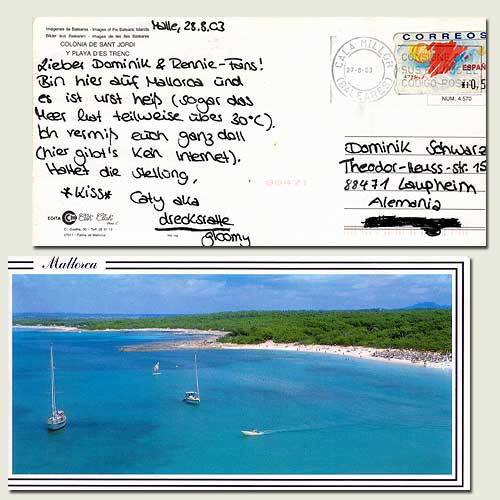 Halle, 28.8.03
Imágenes de Baleares - Images of the Balearic Islands
Bilder aus Balearen - Images de les Illes Balears
COLÒNIA DE SANT JORDI
Y PLAYA D'ES TRENC
Lieber Dominik & Rennie-Fans!
Bin hier auf Mallorca und
es ist urst heiß (sogar das
Meer hat teilweise über 30°C).
Ich vermiß euch ganz doll
(hier gibt's kein Internet).
Haltet die Stellung,
*kiss*
Caty aka
drecksratte
gloomy
EDITA
Click Click
07011 - Palma de Mallorca
CALA MILLOR
27-8-03
(BALEARES)
CORREOS
ESPAÑA
CODIGO POSTAL
NUM. 4.570
Dominik Schwarz
Theodor-Heuss-Str. 15
88471 Laupheim
Alemania
88471
Mallorca